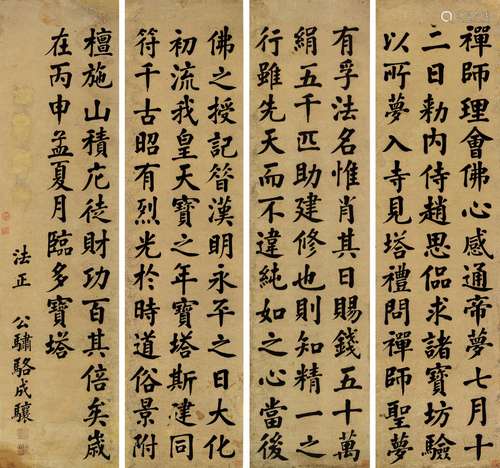 禪師理會佛心感通帝夢七月十
三日勅内侍趙思侶求諸寶坊驗
以所夢入寺見塔禮問禪師聖夢
有孚法名惟肖其日賜錢五十萬
絹五千匹助建修也則知精一之
行雖先天而不違純如之心當後
佛之授記昝漢明永平之日大化
初流我皇天寶之年寶塔斯建同
符千古昭有烈光於時道俗景附
檀施山積庀徒財功百其倍矣歲
在丙申孟夏月臨多寶塔
法正 公驌駱成驤